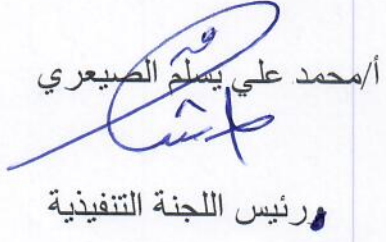 أ/محمد علي يسلم الصيعري
ورئيس اللجنة التنفيذية